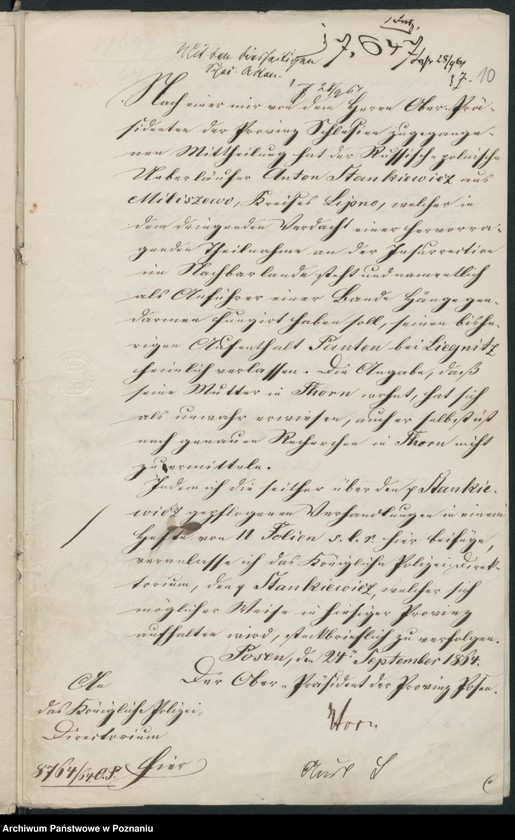 1 Fasc.
17,647
Mit den diesseitigen
28/9 64
10
Nach einer mir von dem Herrn Ober-Prä-
sidenten der Provinz Schlesien zugegange-
nen Mittheilung hat der Russisch polnische
Ueberläufer Anton Stankiewicz aus
Miliszewo, Kreises Lipno, welcher in
dem dringenden Verdacht einer hervorra-
genden Theilnahme an der Insurrection
im Nachbarlande steht und namentlich
als Anführer einer Bande Hänge gen-
darmen fungirt haben soll, seinen bishe-
rigen Aufenthalt Panten bei Liegnitz
heimlich verlassen. Die Angabe, daß
seine Mutter in Thorn wohnt, hat sich
als unwahr erwiesen, auch er selbst ist
nach genauen Recherchen in Thorn nicht
zu ermitteln.
Indem ich die seither über den p Stankie-
wicz gepflogenen Verhandlungen in einem
Hefte von 11 Folien s. l. r. hier beifüge,
veranlasse ich das Königliche Polizei-Direk-
torium, den p Stankiewicz, welcher sich
möglicher Weise in hiesiger Provinz
aufhalten wird, steckbrieflich zu verfolgen.
Posen, den 24ten September 1864.
Der Ober-Präsident der Provinz Posen.
Horn
An
das Königliche Polizei-
Directorium
hier
8764/64 O.P.
Archiwum Państwowe w Poznaniu